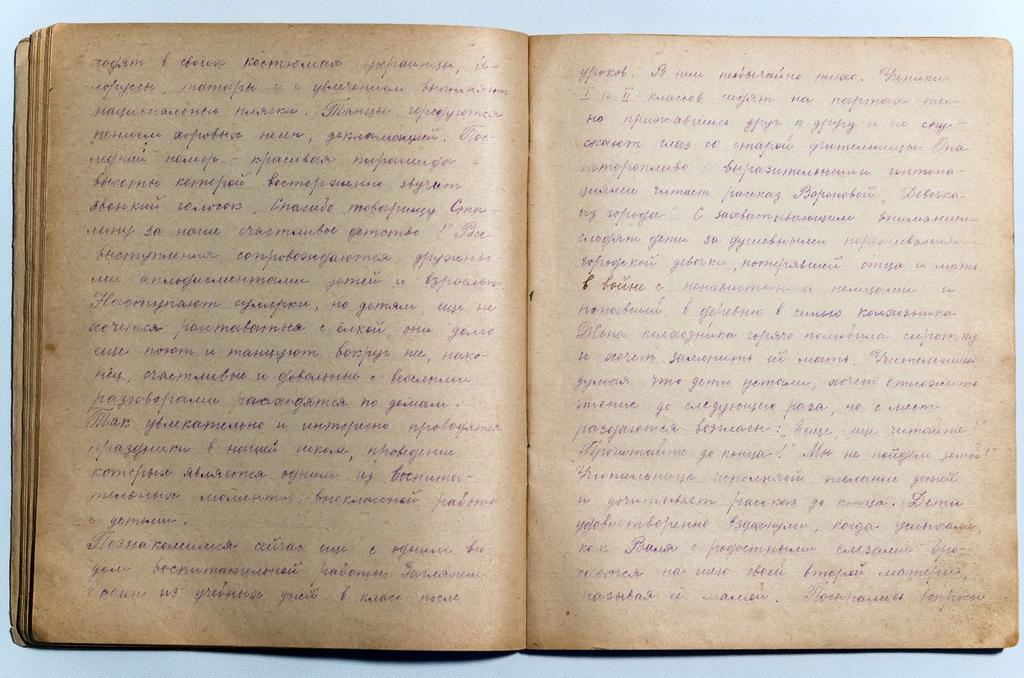 ходят в своих костюмах украинцы, бе-
лоруссы, татары и с увлечением выполняют
национальные пляски. Танцы чередуются
пением хоровых песен, декламацией. Пос-
ледний номер – красивая пирамида с
высоты которой восторженно звучит
звонкий голосок „Спасибо товарищу Ста-
лину за наше счастливое детство!" Все
выступления сопровождаются дружны-
ми аплодисментами детей и взрослых.
Наступают сумерки, но детям еще не
хочется расставаться с ёлкой, они долго
еще поют и танцуют вокруг нее, нако-
нец, счастливые и довольные с веселыми
разговорами расходятся по домам.
Так увлекательно и интересно проводятся
праздники в нашей школе, проведение
которых является одним из воспита-
тельных моментов внеклассной работы
с детьми.
Познакомимся сейчас еще с одним ви-
дом воспитательной работы. Заглянем
в один из учебных дней в класс после
уроков. В нем необычайно тихо. Ученики
I и II классов сидят на партах тес-
но прижавшись друг к другу и не спу-
скают глаз со старой учительницы. Она
неторопливо с выразительными интона-
циями читает рассказ Воронковой „Девочка
из города". С захватывающим вниманием
следят дети за душевными переживаниями
городской девочки, потерявшей отца и мать
в войне с ненавистными немцами и
попавшей в деревню в семью колхозника
Жена колхозника горячо полюбила сиротку
и хочет заменить ей мать. Учительница
думая что дети устали, хочет отложить
чтение до следующего раза, но с мест
раздаются возгласы: „Еще, еще читайте!"
„Прочитайте до конца!" „Мы не пойдем домой!"
Учительница исполняя желание детей
и дочитывает рассказ до конца. Дети
удовлетворенно вздохнули, когда услыхали,
как Валя с радостными слезами бро-
сается на шею своей второй матери,
называя её мамой. Посыпались вопросы